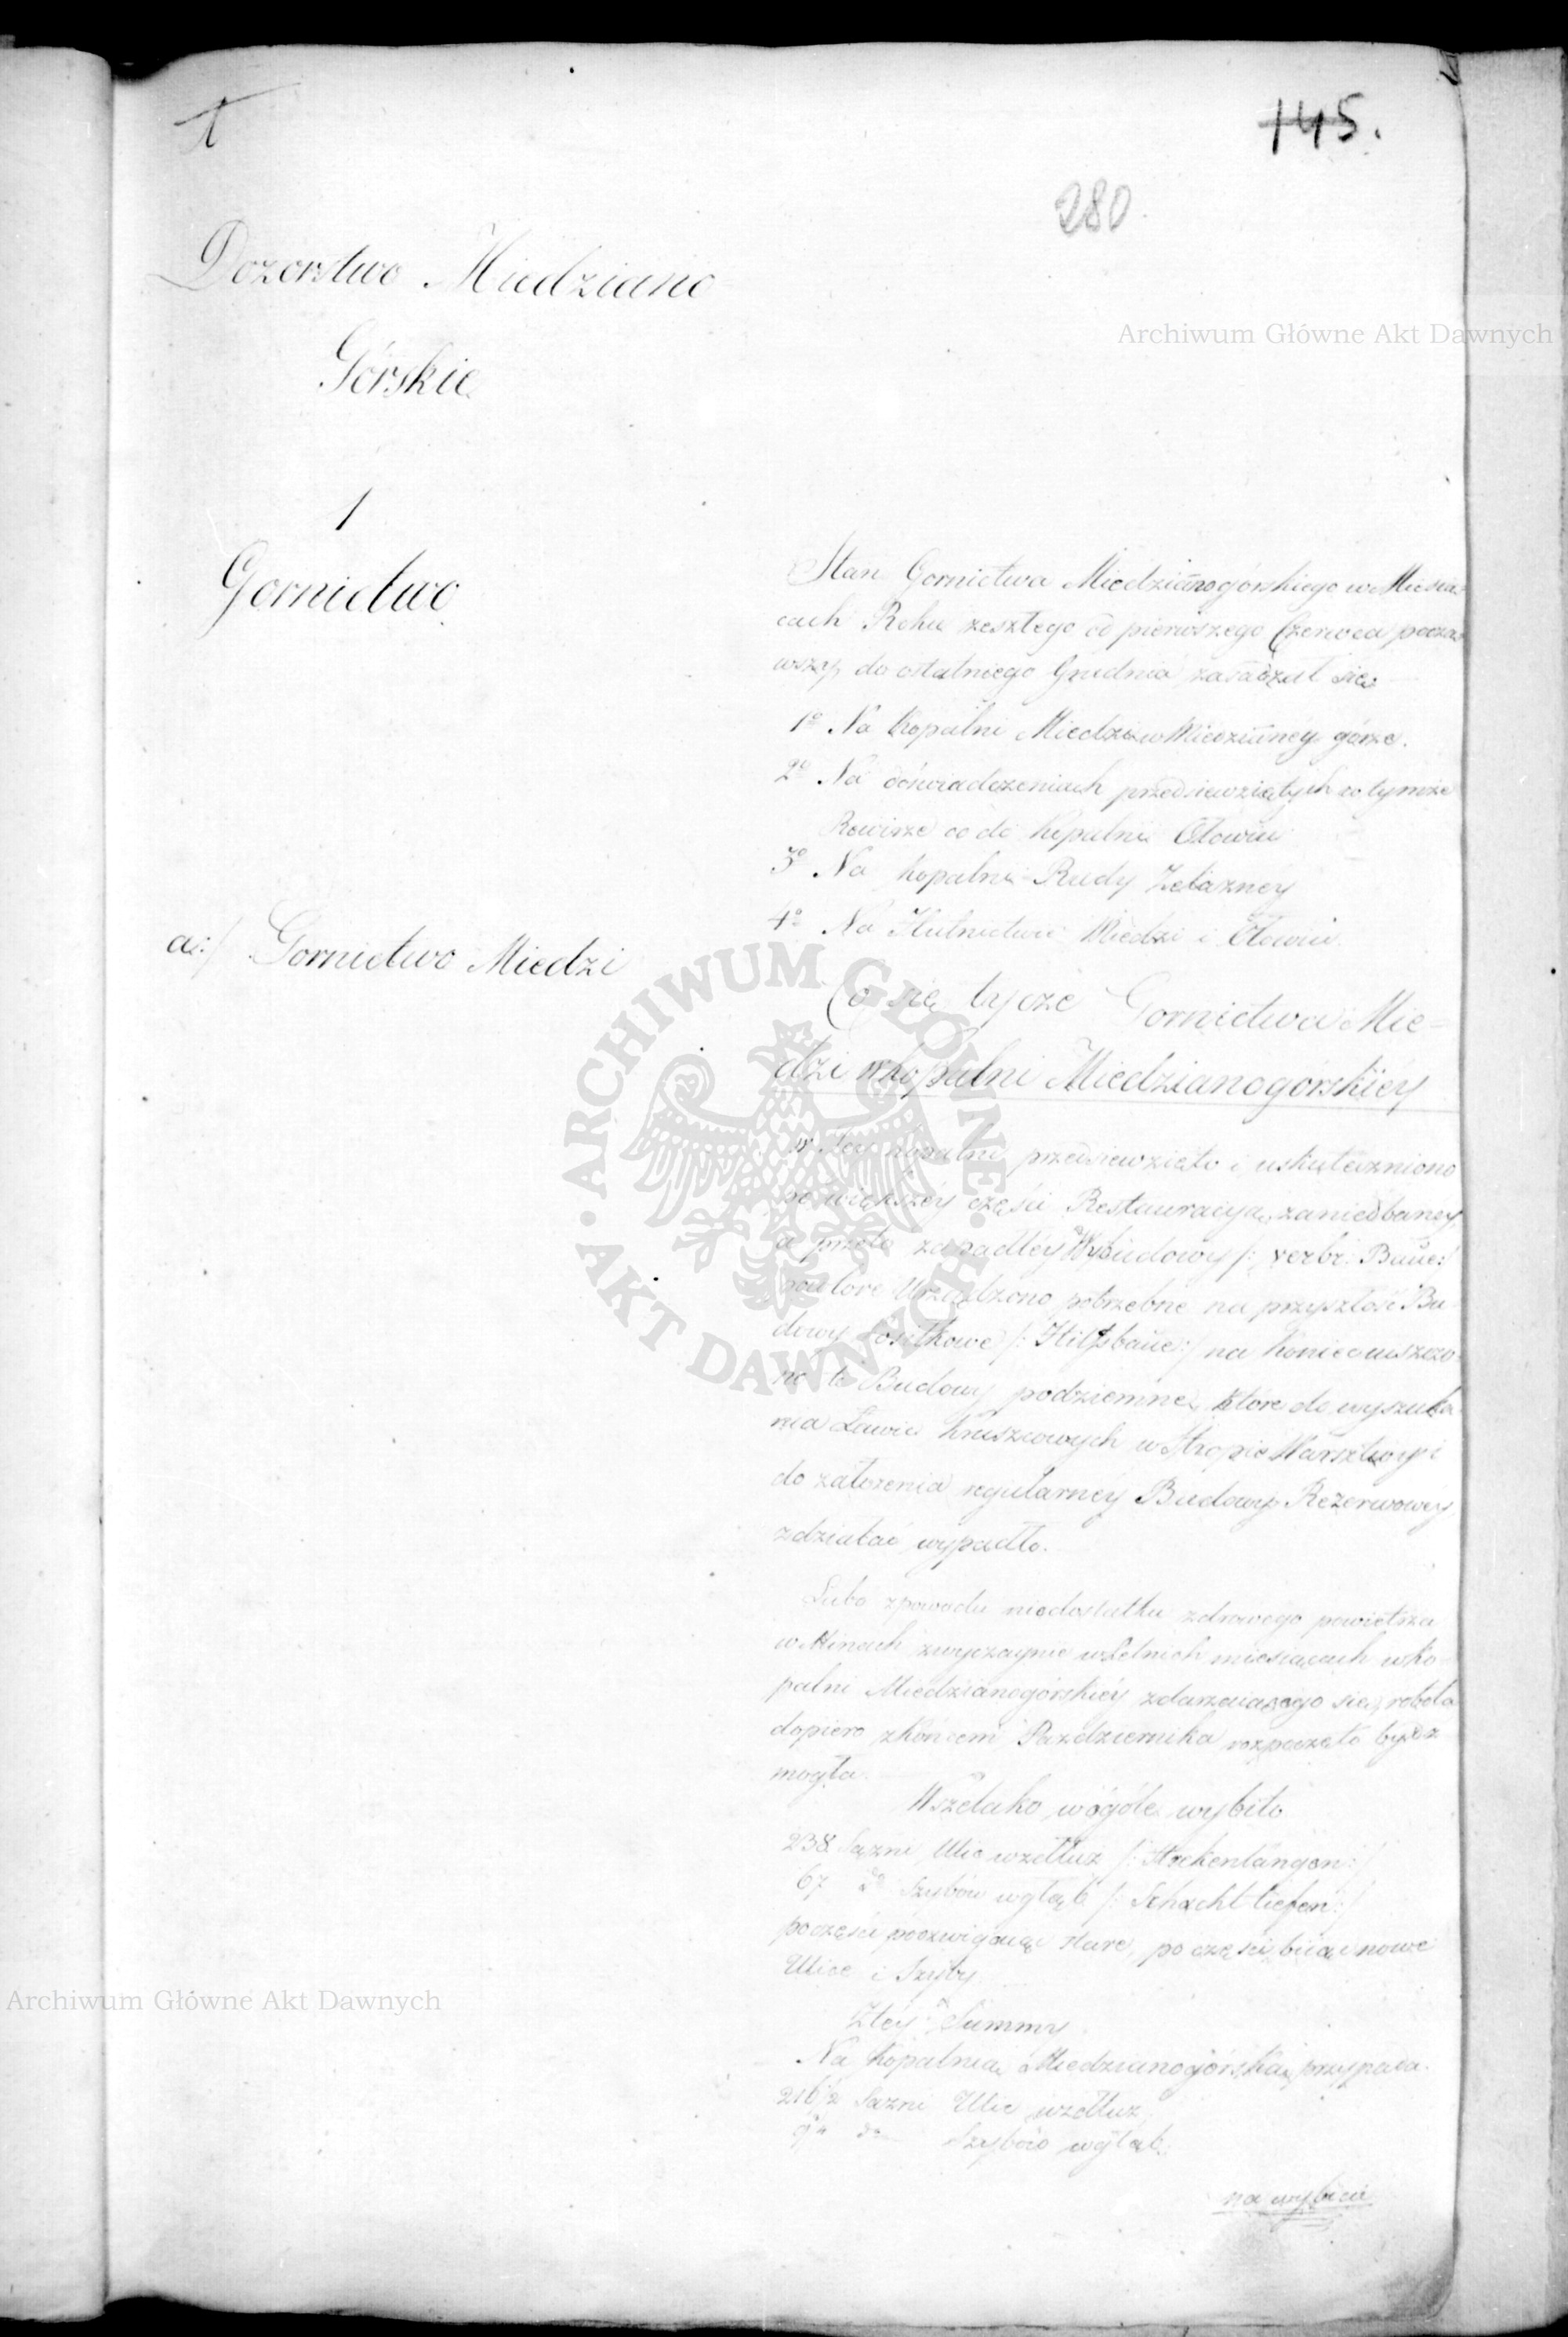 145.
280
Dozorstwo Miedziano
Górskie
1
Gornictwo
Stan Gornictwa Miedzianogórskiego w Miesią
cach Roku zeszłego od pierwszego Czerwca począ
wszy, do ostatniego Grudnia zasadzał się:
1º Na Kopalni Miedzi w Miedzianéy górze.
2º Na doświadczeniach przedsiewziętych w tymże
Rewirze co do Kopalni Ołowiu
3º Na kopalni Rudy Żelazney
4º Na Hutnictwie Miedzi i Ołowiu.
a:/ Gornictwo Miedzi
Co się tycze Gornictwa Mie=
dzi w kopalni Miedzianogórskiéy
W tey kopalni przedsiewzięto i uskuteczniono
po większéy części Restauracyą zaniedbanéy,
a przeto zapadłéy Wybudowy /: verbr. Baue:/
powtóre Urządzono potrzebne na przyszłość Bu
dowy posiłkowe /: Hilfsbaue:/ na koniec uiszczo
no te Budowy podziemne, które do wyszuka
nia Ławic kruszcowych w Stropie Warsztwy i
do założenia regularnéy Budowy Rezerwowéy
zdziałać wypadło.
Lubo z powodu niedostatku zdrowego powietrza
w Minach zwyczaynie w letnich miesiącach w ko
palni Miedzianogórskiéy zdarzaiącego się, robota
dopiero z końcem Pazdziernika rozpoczętą bydz
mogła.
Wszelako wógóle wybito
238 Sążni Ulic wzdłuz /: Streckenlängen:/
67 dº Szybów wgłąb /: Schacht tiefen:/
poczęści podzwigaiąc stare, po części biiąc nowe
Ulice i Szyby.
Z téy Summy
Na kopalnią Miedzianogórską przypada.
216/2 Sazni Ulic wzdłuz,
dº Szybów wgłąb.
na wybicie
Archiwum Główne Akt Dawnych
Archiwum Główne Akt Dawnych
ARCHIWUM GŁÓWNE • AKT DAWNYCH •